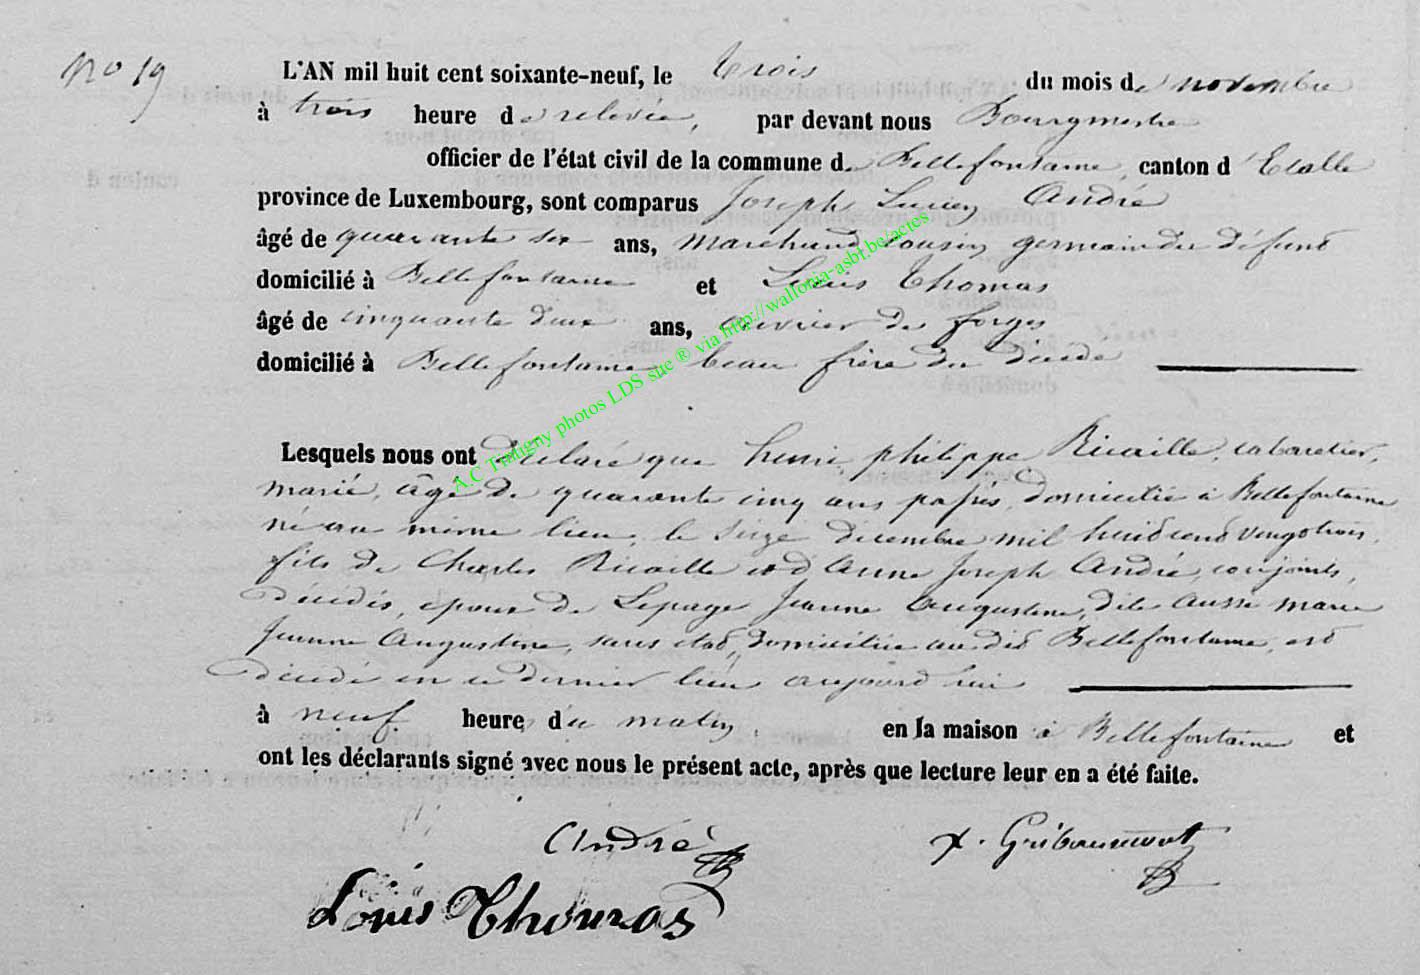 No 19
L'AN mil huit cent soixante-neuf, le trois du mois de novembre
à trois heure de relevée, par devant nous Bourgmestre
officier de l'état civil de la commune de Bellefontaine, canton d'Etalle
province de Luxembourg, sont comparus Joseph Lucien André
âgé de quarante six ans, marchand cousin germain du défunt
domicilié à Bellefontaine et Louis Thomas
âgé de cinquante deux ans, ouvrier de forges
domicilié à Bellefontaine beau frère du décédé
Lesquels nous ont déclaré que henri philippe Ricaille, cabaretier,
marié, âgé de quarante cinq ans passés, domicilié à Bellefontaine
né au même lieu, le seize décembre mil huit cent vingt trois,
fils de Charles Ricaille et d'Anne Joseph André, conjoints,
décédés, epoux de Lepage Jeanne Augustine, dite aussi marie
Jeanne Augustine, sans état, domiciliée au dit Bellefontaine, est
décédé en ce dernier lieu aujourd'hui
à neuf heures du matin, en la maison à Bellefontaine et
ont les déclarants signé avec nous le présent acte, après que lecture leur en a été faite.
André
X. Gribaumont
Louis Thomas
A.C Tintigny photos LDS sue ® via http://wallonia-asbl.be/actes